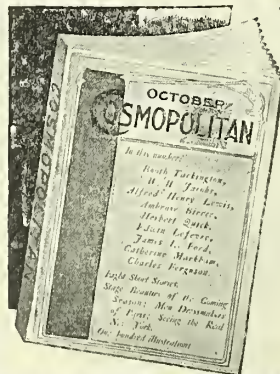 OCTOBER
COSMOPOLITAN
In this number:
Booth Tarkington,
W. W. Jacobs,
Alfred Henry Lewis,
Ambrose Bierce,
Herbert Quick,
Edwin Lefevre,
James L. Ford,
Catherine Markham,
Charles Ferguson.
Eight Short Stories.
Stage Beauties of the Coming
Season; Men Dressmakers
of Paris; Seeing the Real
New York.
One hundred illustrations
COSMOPOLITAN